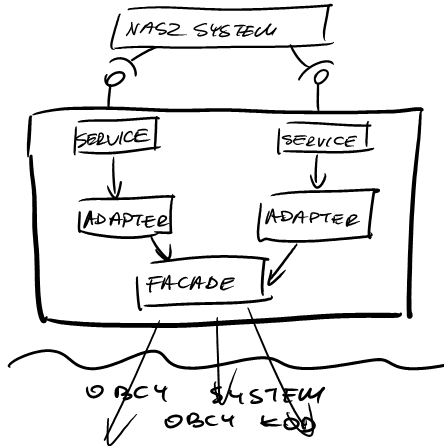 NASZ SYSTEM
SERVICE SERVICE
ADAPTER ADAPTER
FACADE
OBCY SYSTEM
OBCY KOD